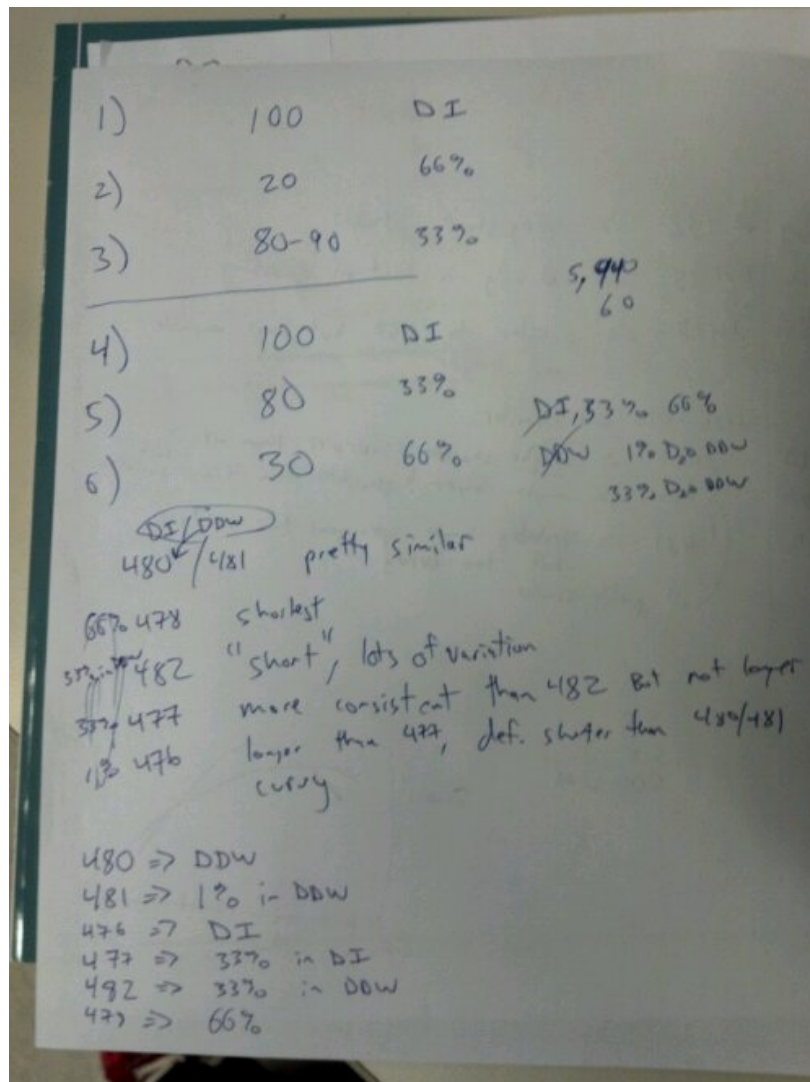 1) 100 DI
2) 20 66%
3) 80-90 33%
5,940
60
4) 100 DI
5) 80 33%
6) 30 66%
DI, 33% 66%
DDW 1% D2O DDW
33% D2O DDW
DI/DDW
480/481 pretty similar
66% 478 shortest
33% in DDW 482 "short", lots of variation
33% 477 more consistent than 482 But not longer
1% 476 longer than 477, def. shorter than 480/481
curvy
480 => DDW
481 => 1% in DDW
476 => DI
477 => 33% in DI
482 => 33% in DDW
=> 66%